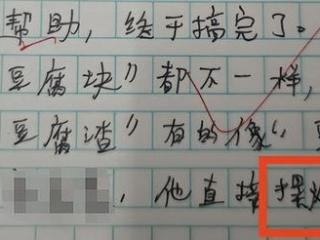 帮助，终于搞完了。
豆腐块”都不一样，
豆腐渣”有的像“豆
，他直接摆